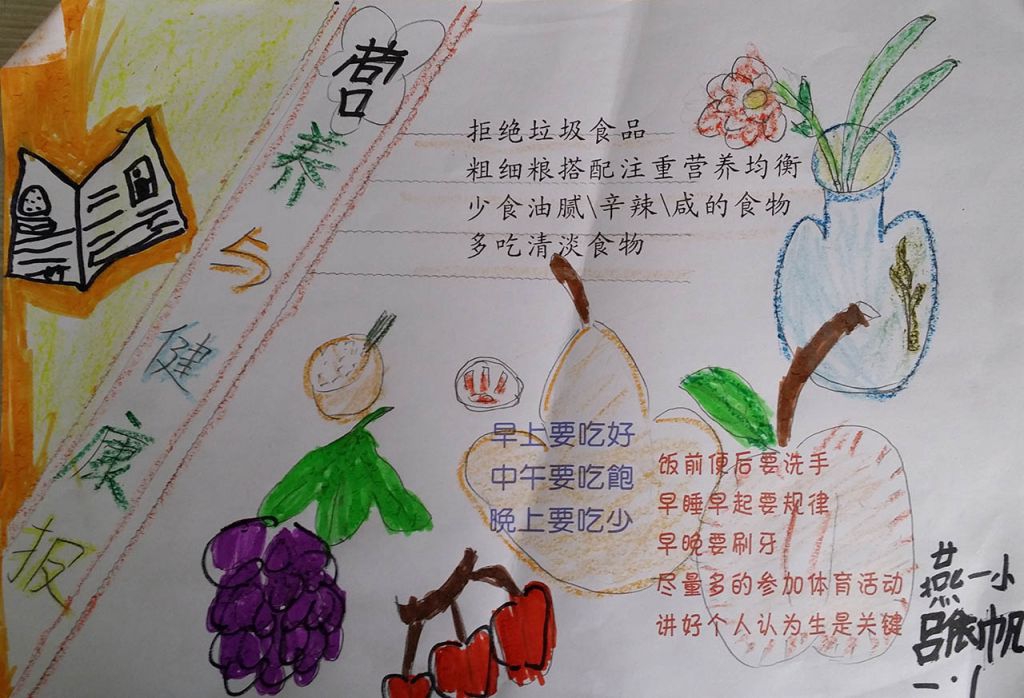 营养与健康报
拒绝垃圾食品
粗细粮搭配注重营养均衡
少食油腻\辛辣\咸的食物
多吃清淡食物
早上要吃好
中午要吃飽
晚上要吃少
饭前便后要洗手
早睡早起要规律
早晚要刷牙
尽量多的参加体育活动
讲好个人认为生是关键
燕一小
一·1